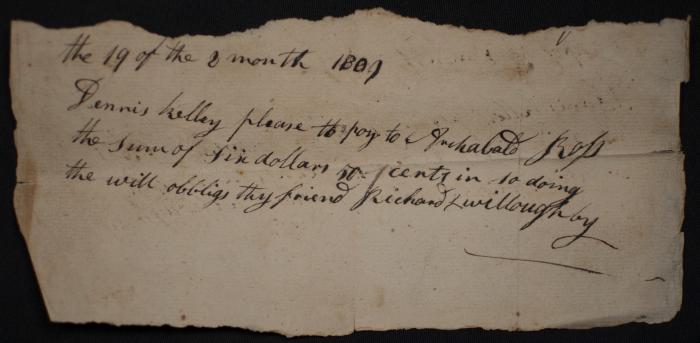 the 19 of the 8 month 1809
Dennis Kelley please to pay to Archabald Ross
the sum of Six dollars 50 cents in so doing
the will obbligs thy friend Richard Willoughby